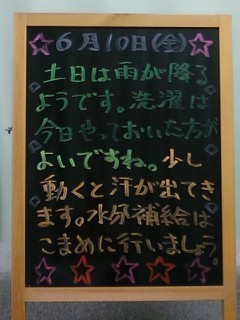 6月10日(金)
土日は雨が降る
ようです。洗濯は
今日やっておいた方が
よいですね。少し
動くと汗が出てき
ます。水分補給は
こまめに行いましょう。